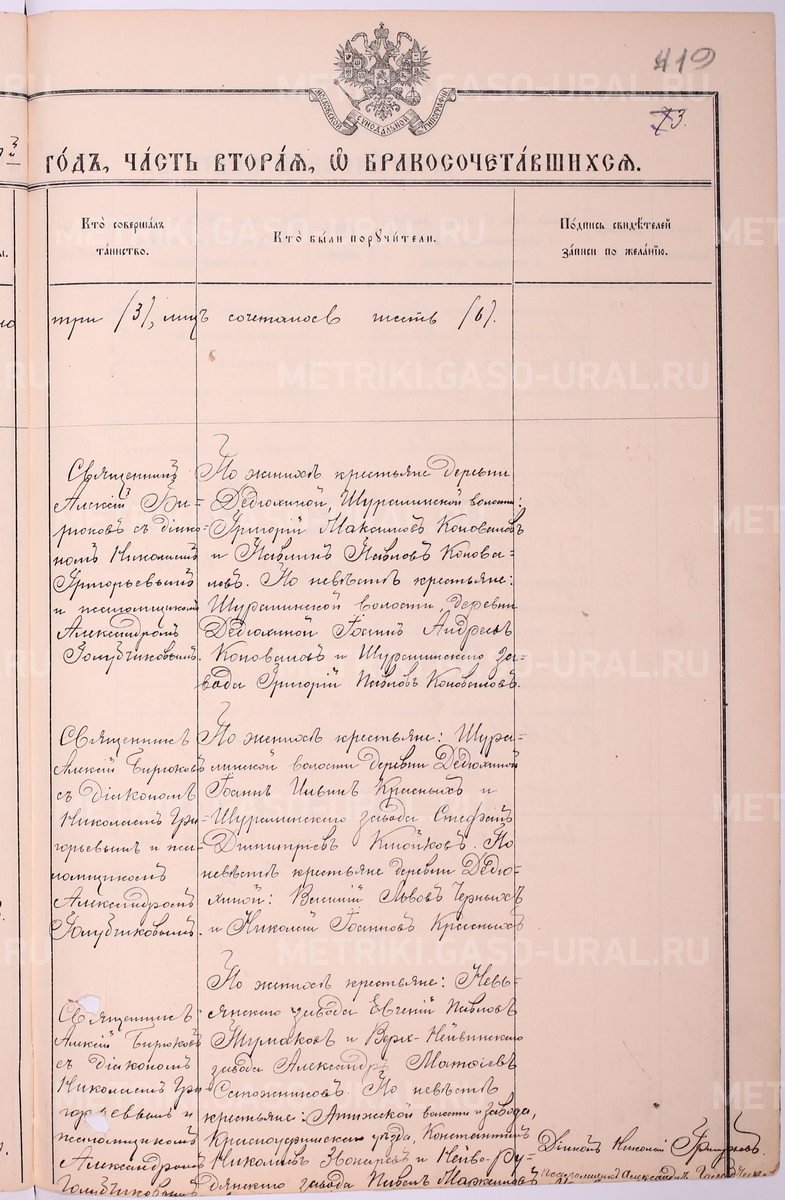 419
73.
МОСКОВСКОЙ СѴНОДАЛЬНОЙ ТИПОГРАФІИ
го́дъ, ча́сть втора́ѧ, ѡ҆ бракосочета́вшихсѧ.
Кто̀ соверша́лъ
та́инство.
Кто̀ бы́ли порꙋчи́тели.
По́дпись свидѣ́телей
за́писи по жела́нїю.
три (3), лицъ сочеталось шесть (6).
Священникъ
Алексій Би-
рюковъ съ діако-
номъ Николаемъ
Григорьевымъ
и псаломщикомъ
Александромъ
Голубчиковымъ.
По женихѣ крестьяне деревни
Дедюхиной, Шуралинской волости:
Григорій Максимовъ Коноваловъ
и Павлинъ Павловъ Конова-
ловъ. По невѣстѣ крестьяне:
Шуралинской волости, деревни
Дедюхиной Іоаннъ Андреевъ
Коноваловъ и Шуралинскаго за-
вода Григорій Павловъ Коноваловъ.
Священникъ
Алексій Бирюковъ
съ діакономъ
Николаемъ Гри-
горьевымъ и пса-
ломщикомъ
Александромъ
Голубчиковымъ.
По женихѣ крестьяне: Шура-
линской волости деревни Дедюхиной
Іоаннъ Ильинъ Красныхъ и
Шуралинскаго завода Стефанъ
Димитріевъ По
невѣстѣ крестьяне деревни Дедю-
хиной: Василій Львовъ Черныхъ
и Николай Іоанновъ Красныхъ
Священникъ
Алексій Бирюковъ
съ діакономъ
Николаемъ Гри-
горьевымъ и
псаломщикомъ
Александромъ
Голубчиковымъ
По женихѣ крестьяне: Невь-
янскаго завода Евгеній Павловъ
и Верх-Нейвинскаго
завода Александръ Матѳіевъ
Сапожниковъ. По невѣстѣ
крестьяне: волости и завода,
Красноуфимскаго уѣзда, Константинъ
Николаевъ и Нейво-Ру-
дянскаго завода Павелъ
Діаконъ Николай Григорьевъ.
Псаломщикъ Александръ Голубчиковъ
METRIKI.GASO-URAL.RU